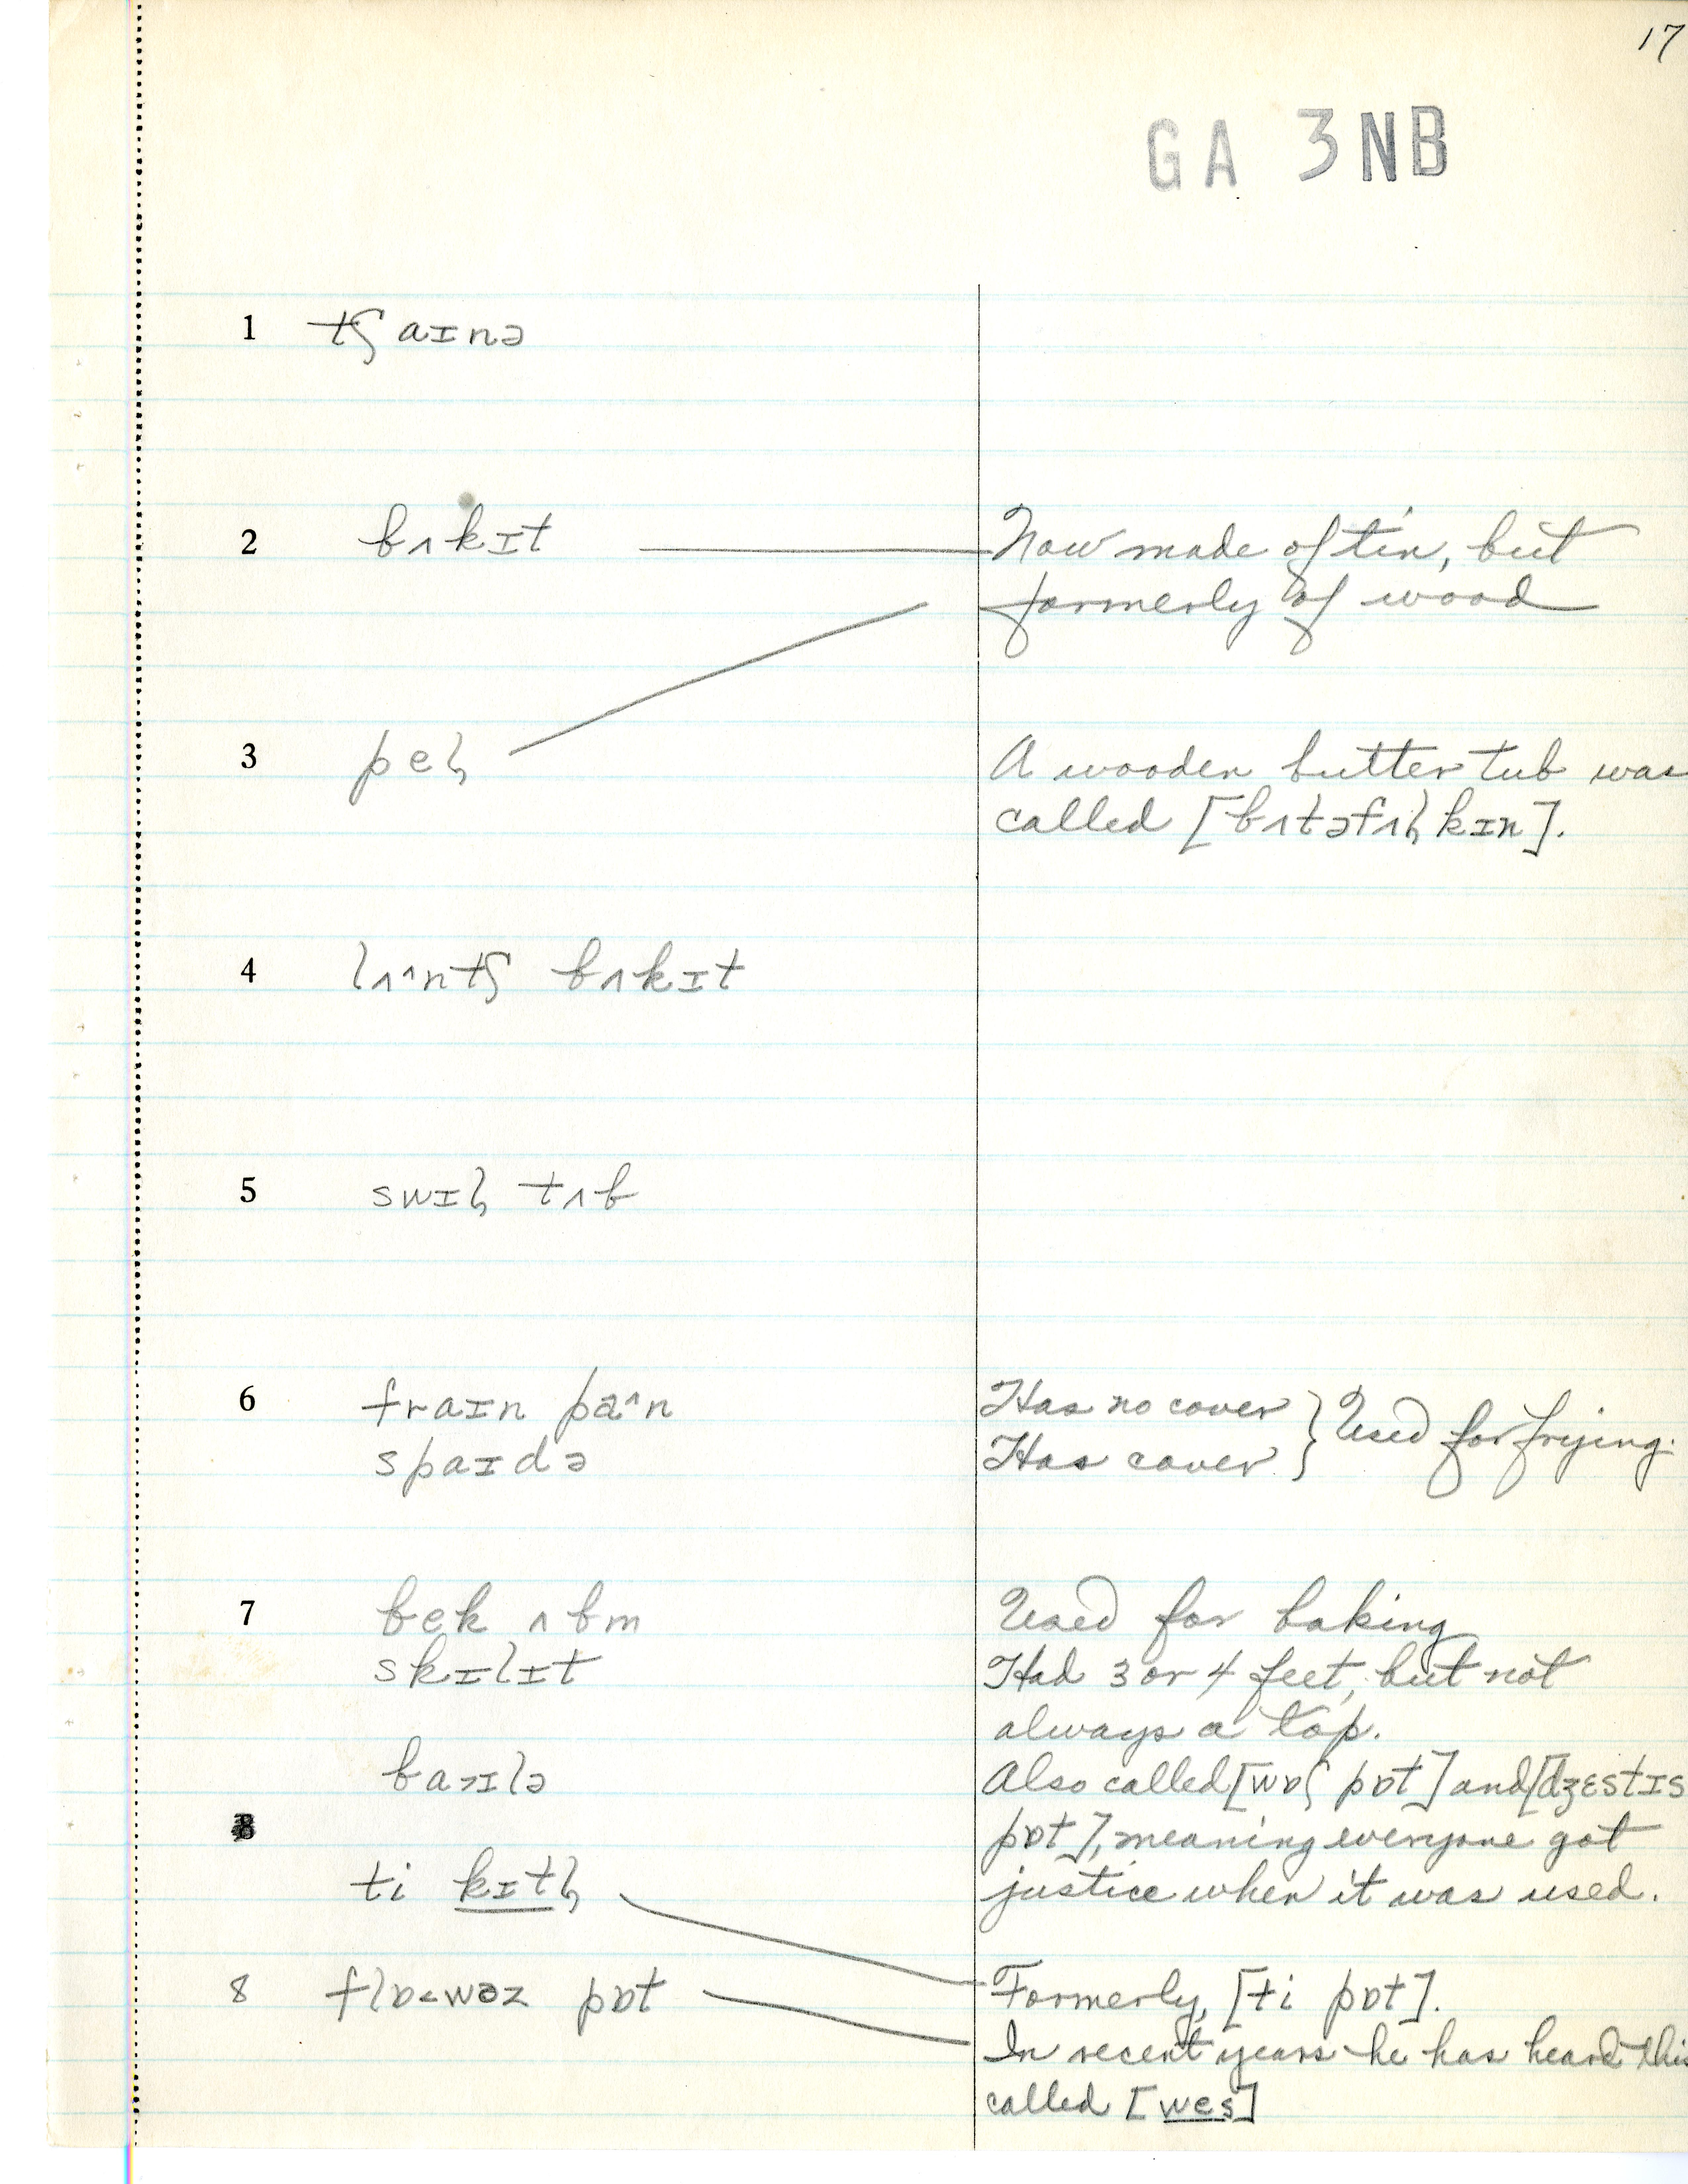 17
GA 3NB
1 tʃaɪnə
2 bʌkɪt Now made of tin, but
formerly of wood
3 peɫ A wooden butter tub was
called [bʌtəfʌɫkɪn].
4 lʌ^ntʃ bʌkɪt
5 swɪɫ tʌb
6 fraɪn pa^n Has no cover } Used for frying.
spaɪdə Has cover
7 bek ʌbm Used for baking
skɪlɪt Had 3 or 4 feet, but not
always a top.
baɪlə Also called [wɒʃ pɒt] and [dʒɛstɪs
8 pɒt], meaning everyone got
ti kɪtɫ justice when it was used.
8 flɒ<wəz pɒt Formerly, [ti pɒt].
In recent years he has heard this
called [wes]